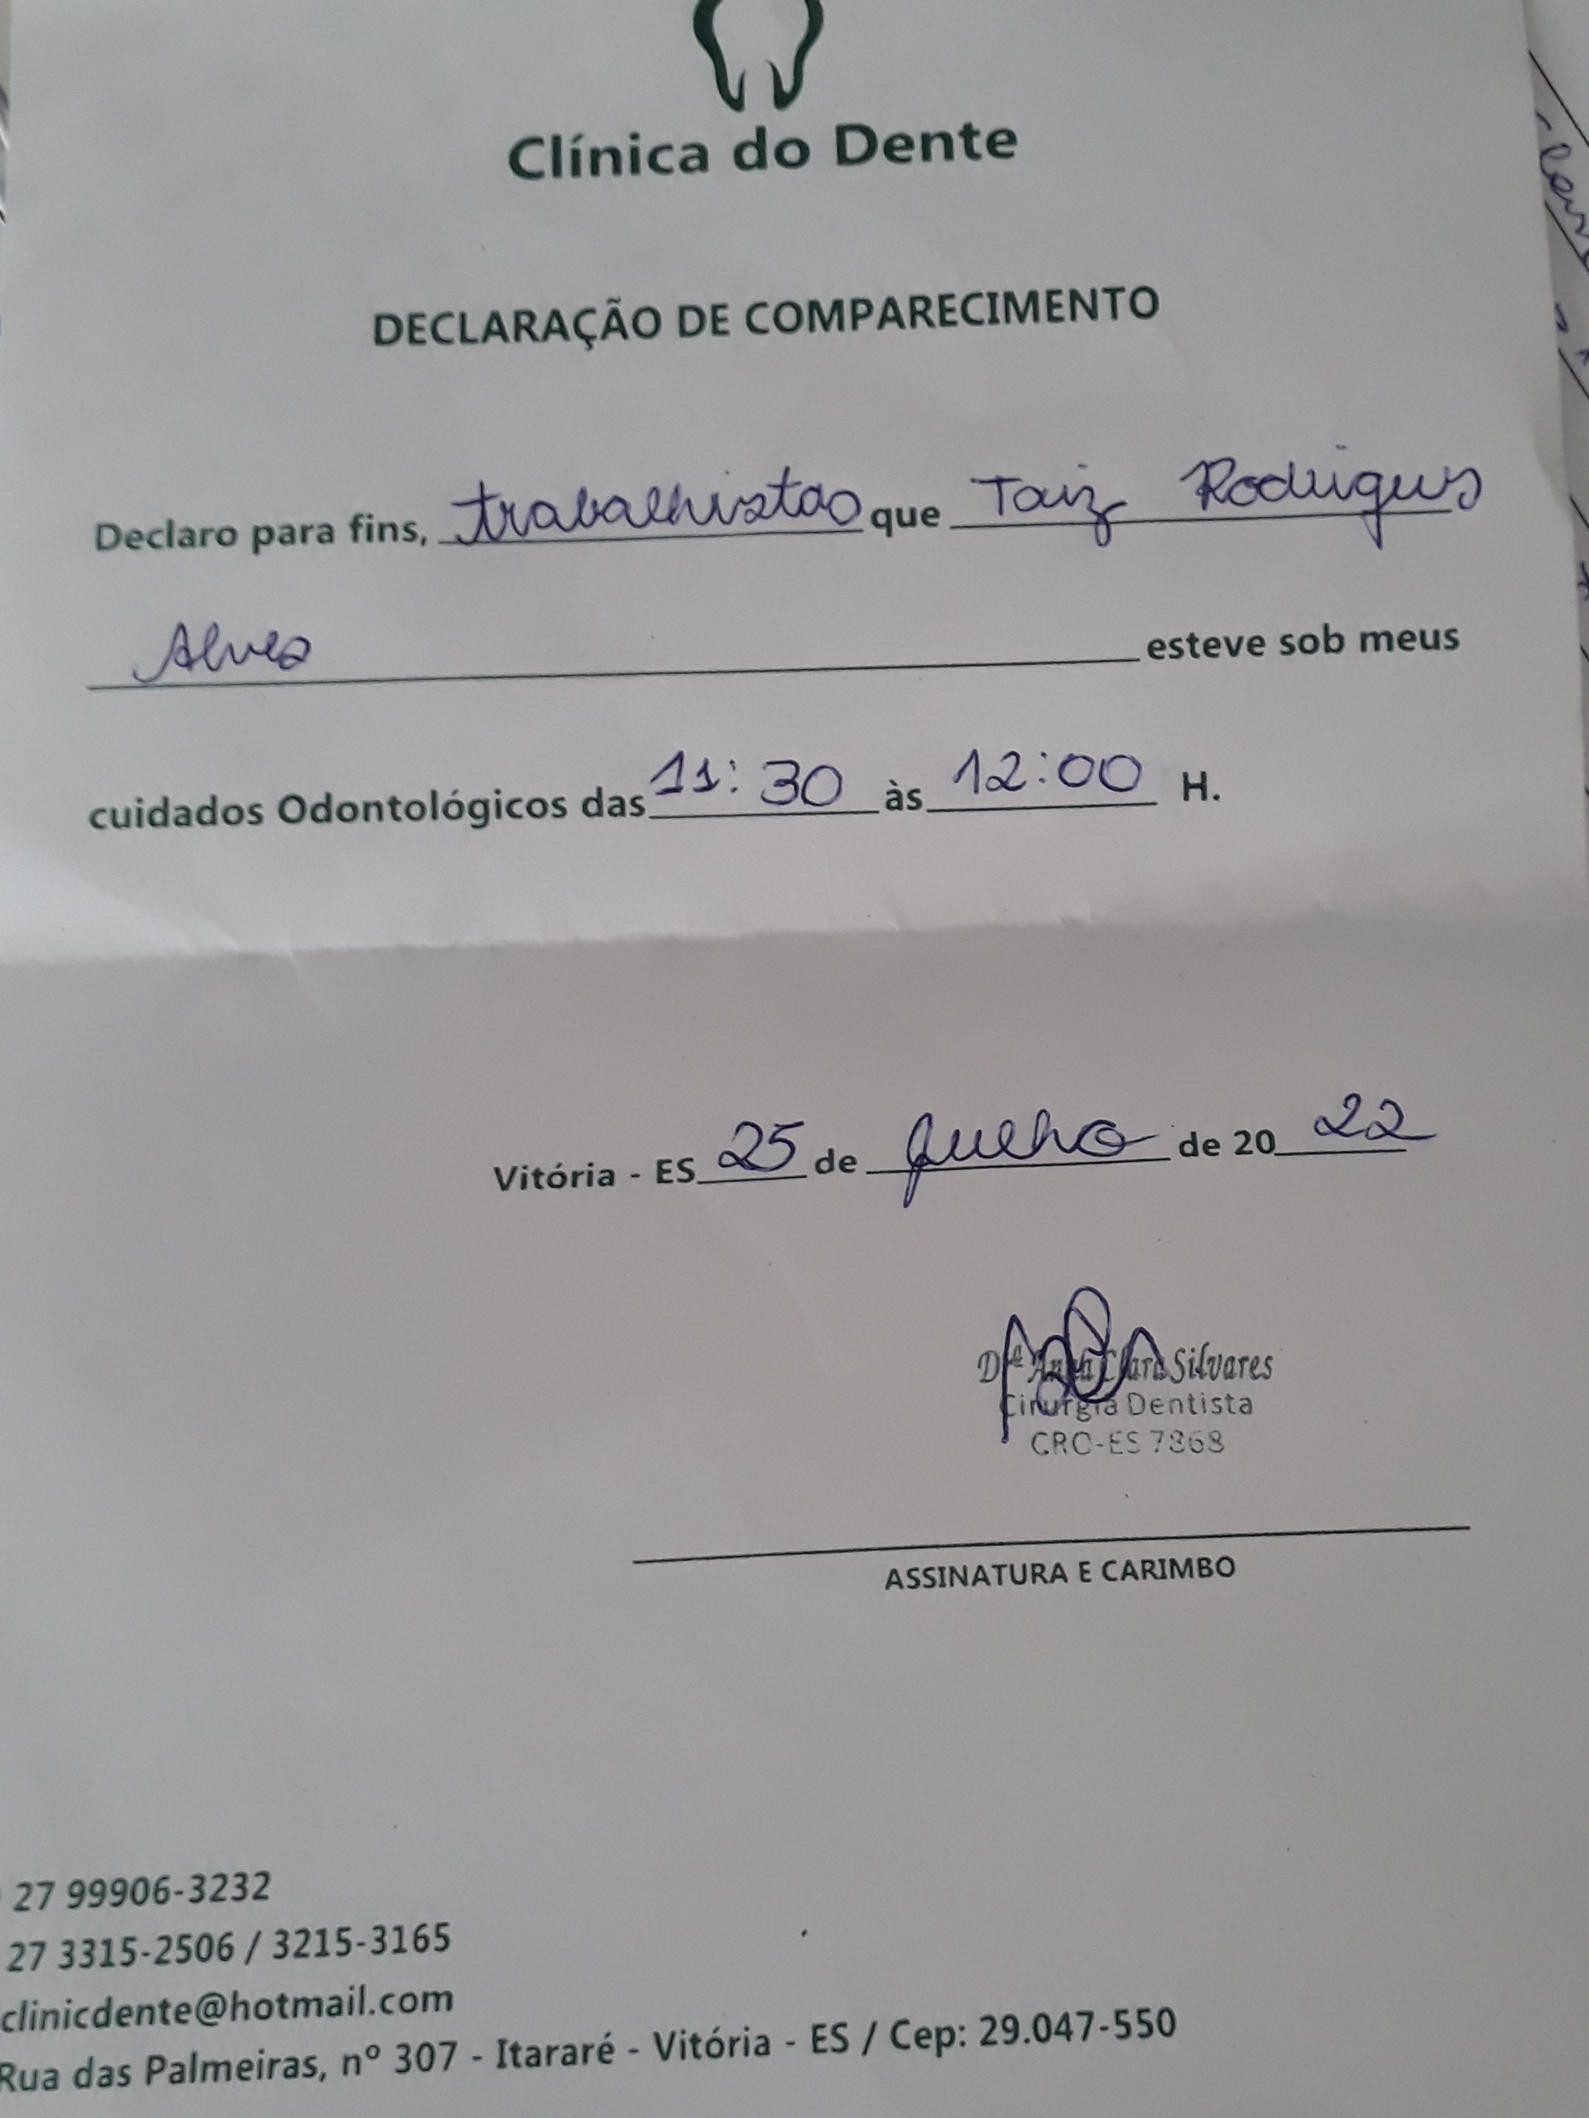 Clínica do Dente
DECLARAÇÃO DE COMPARECIMENTO
Declaro para fins, trabalhistas que Taiz Rodrigues
Alves esteve sob meus
cuidados Odontológicos das 11:30 às 12:00 H.
Vitória - ES 25 de Julho de 20 22
Drª Clara Silvares
Cirurgiã Dentista
CRO-ES 7868
ASSINATURA E CARIMBO
27 99906-3232
27 3315-2506 / 3215-3165
clinicdente@hotmail.com
Rua das Palmeiras, nº 307 - Itararé - Vitória - ES / Cep: 29.047-550